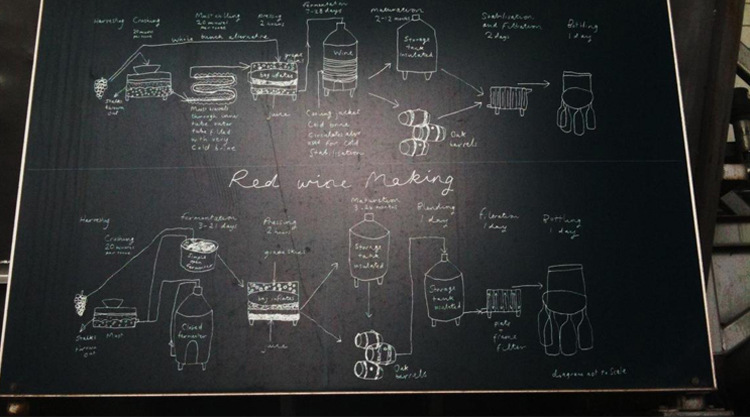 Harvesting
Crushing
20 mins
per tonne
Must cooling
20 minutes
per tonne
Pressing
2 hours
Fermentation
7-28 days
Maturation
2-12 months
Stabilisation
and filtration
2 days
Bottling
1 day
Whole bunch alternative
grape
Wine
Storage
tank
insulated
bag inflates
Stalks
thrown
out
Must travels
through inner
tube outer
tube filled
with very
cold brine
juice
Cooling jacket
Cold brine
Circulates
Stabilisation
Oak
barrels
Red wine Making
Harvesting
Crushing
20 mins
per tonne
Fermentation
3-21 days
Pressing
2 hours
Maturation
3-24 months
Blending
1 day
Filtration
1 day
Bottling
1 day
open
fermenter
grape skins
Storage
tank
insulated
bag inflates
Storage
tank
insulated
Stalks
thrown
out
Must
Closed
fermenter
juice
Oak
barrels
plate
+
frame
filter
diagram not to Scale